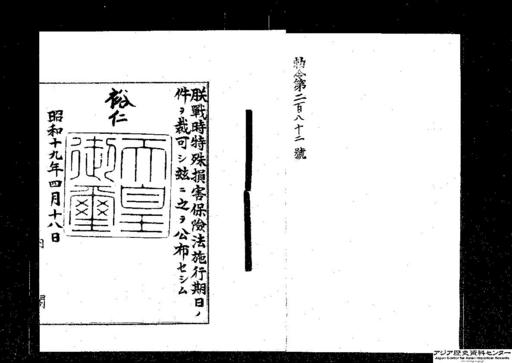 勅令第二百八十二號
朕戰時特殊損害保險法施行期日ノ
件ヲ裁可シ玆ニ之ヲ公布セシム
裕仁
天皇
御璽
昭和十九年四月十八日
内閣
アジア歴史資料センター
Japan Center for Asian Historical Records